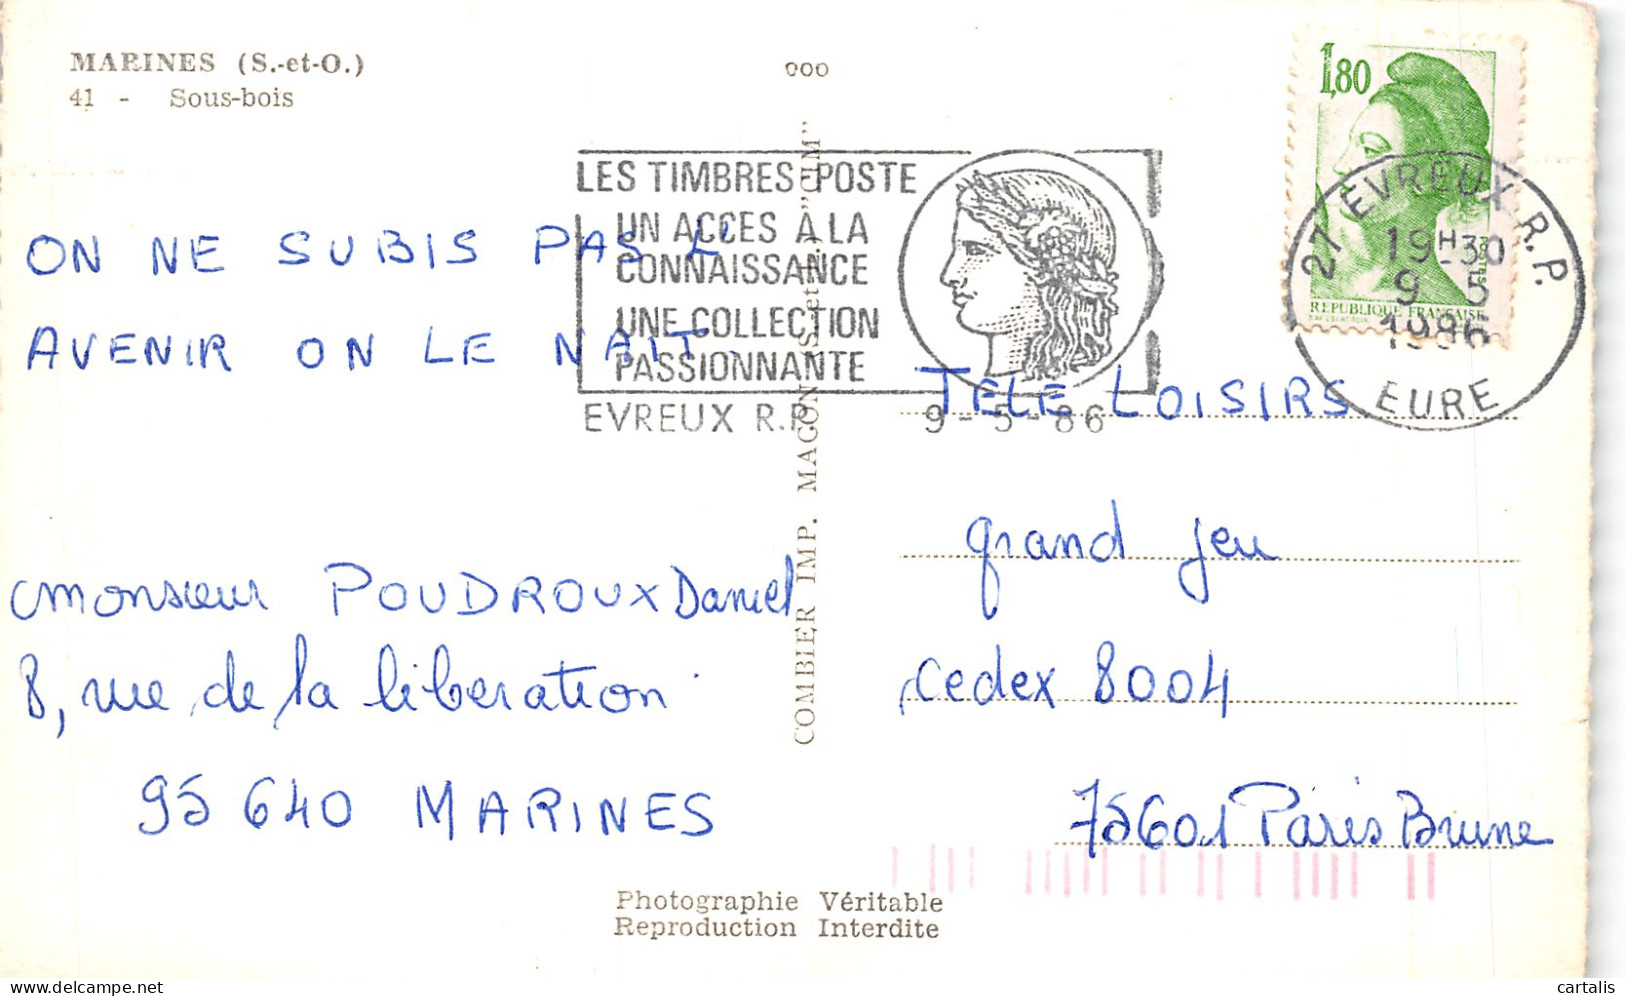 MARINES (S.-et-O.)
41 - Sous-bois
000
1,80
REPUBLIQUE FRANÇAISE
27 EVREUX R.P.
19H30
9 5
1986
EURE
LES TIMBRES-POSTE
UN ACCES A LA
CONNAISSANCE
UNE COLLECTION
PASSIONNANTE
EVREUX R.P.
9-5-86
ON NE SUBIS PAS L'
AVENIR ON LE NAIT.
Monsieur POUDROUX Daniel
8, rue de la liberation
95640 MARINES
TELE LOISIRS
grand jeu
Cedex 8004
75601 Paris Brune
COMBIER IMP. MACON S et
Photographie Véritable
Reproduction Interdite
cartalis